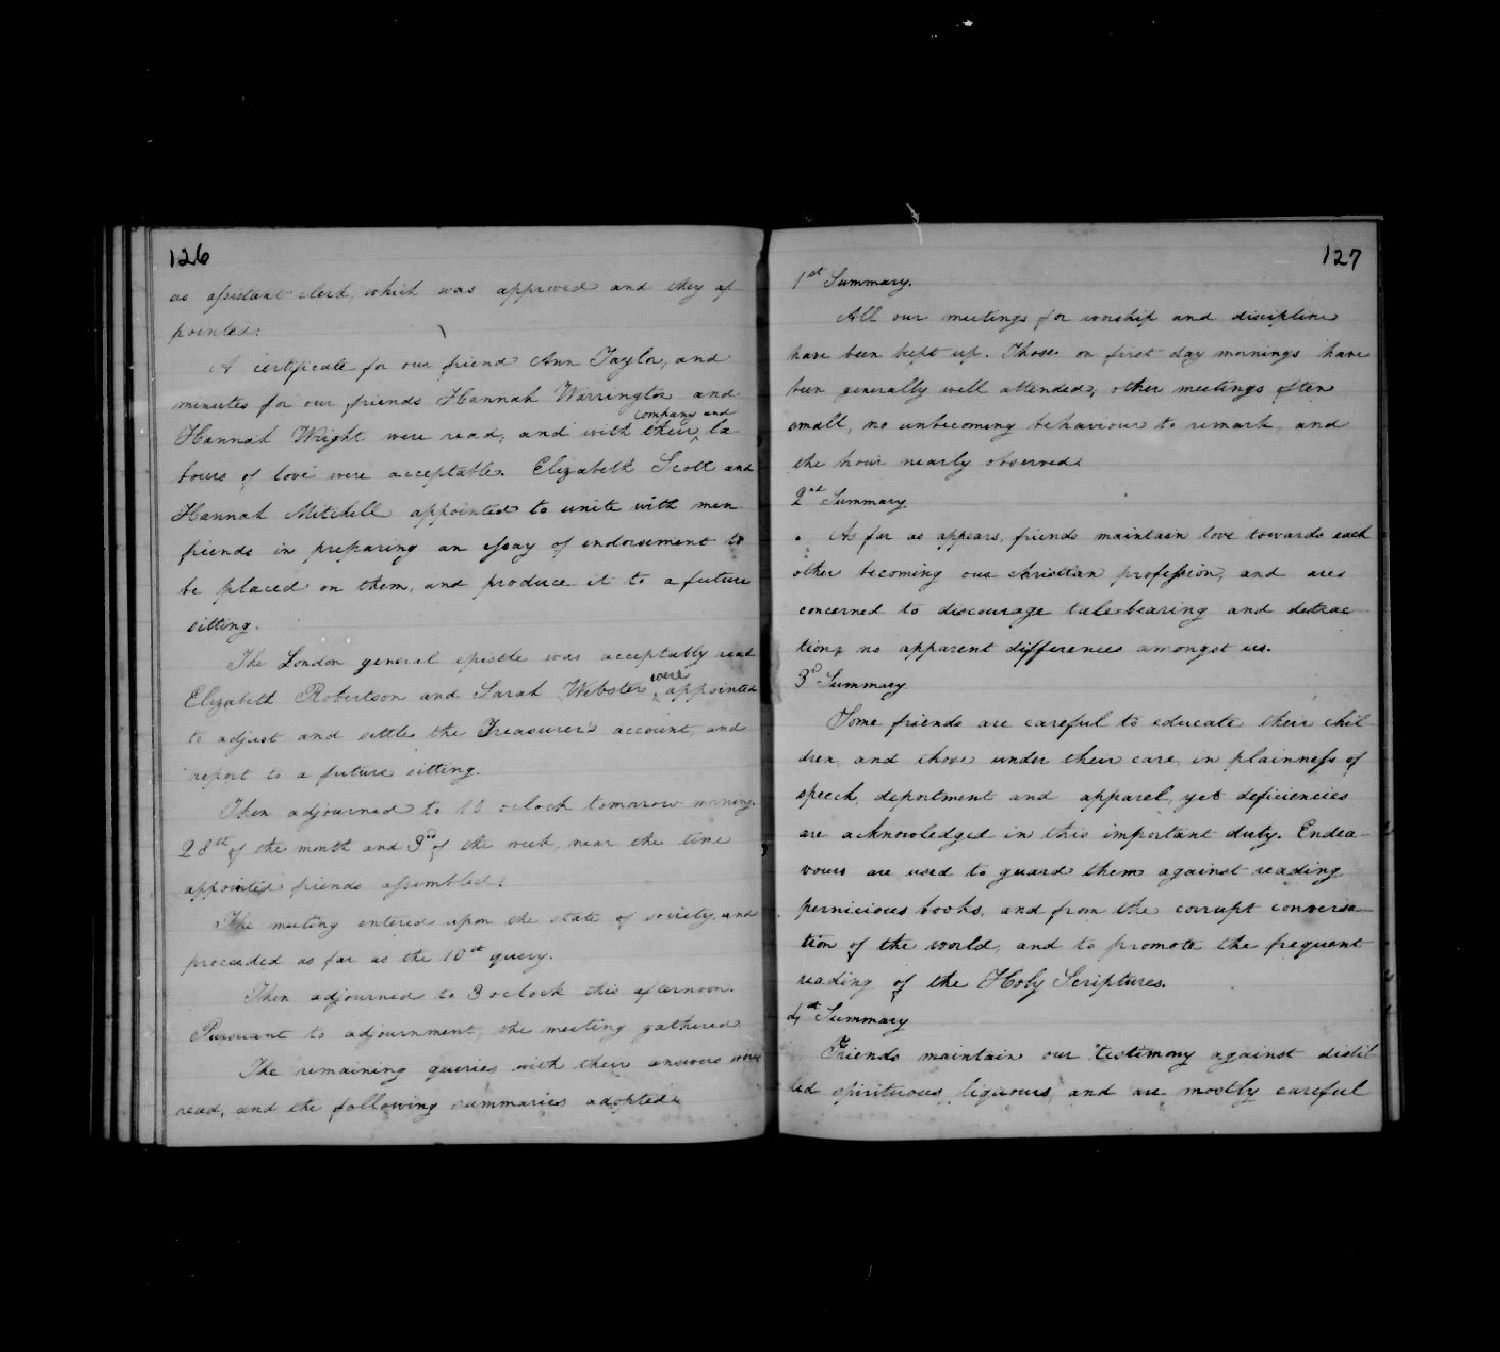 126
as assistant clerk, which was approved and they ap
pointed.
A certificate for our friend Ann Taylor, and
minutes for our friends Hannah Warrington and
company and
Hannah Wright were read, and with their ^ la
bours of love were acceptable. Elizabeth Scott and
Hannah Mitchell appointed to unite with men
friends in preparing an essay of endorsement to
be placed on them, and produce it to a future
sitting.
The London general epistle was acceptably read
were
Elizabeth Robertson and Sarah Webster ^ appointed
to adjust and settle the Treasurer's account, and
report to a future sitting.
Then adjourned to 10 oclock tomarow morning.
28th of the month and 3d of the week, near the time
appointed friends assembled.
The meeting entered upon the state of society, and
proceeded as far as the 10th query.
Then adjourned to 3 oclock this afternoon.
Pursuant to adjournment, the meeting gathered
The remaining queries with their answers were
read, and the following summaries adopted.
127
1st Summary.
All our meetings for worship and discipline
have been kept up. Those on first day mornings have
been generally well attended, other meetings often
small, no unbecoming behaviour to remark, and
the hour nearly observed.
2nd Summary
As far as appears, friends maintain love towards each
other becoming our christian profession, and are
concerned to discourage talebearing and detrac
tion, no apparent differences amongst us.
3d Summary.
Some friends are careful to educate their chil
dren, and those under their care, in plainness of
speech, deportment and apparel, yet deficiencies
are acknowledged in this important duty. Endea-
vours are used to guard them against reading
pernicious books, and from the corrupt conversa-
tion of the world, and to promote the frequent
reading of the Holy Scriptures.
4th Summary
Friends maintain our testimony against distil
led spirituous liquours, and are mostly careful